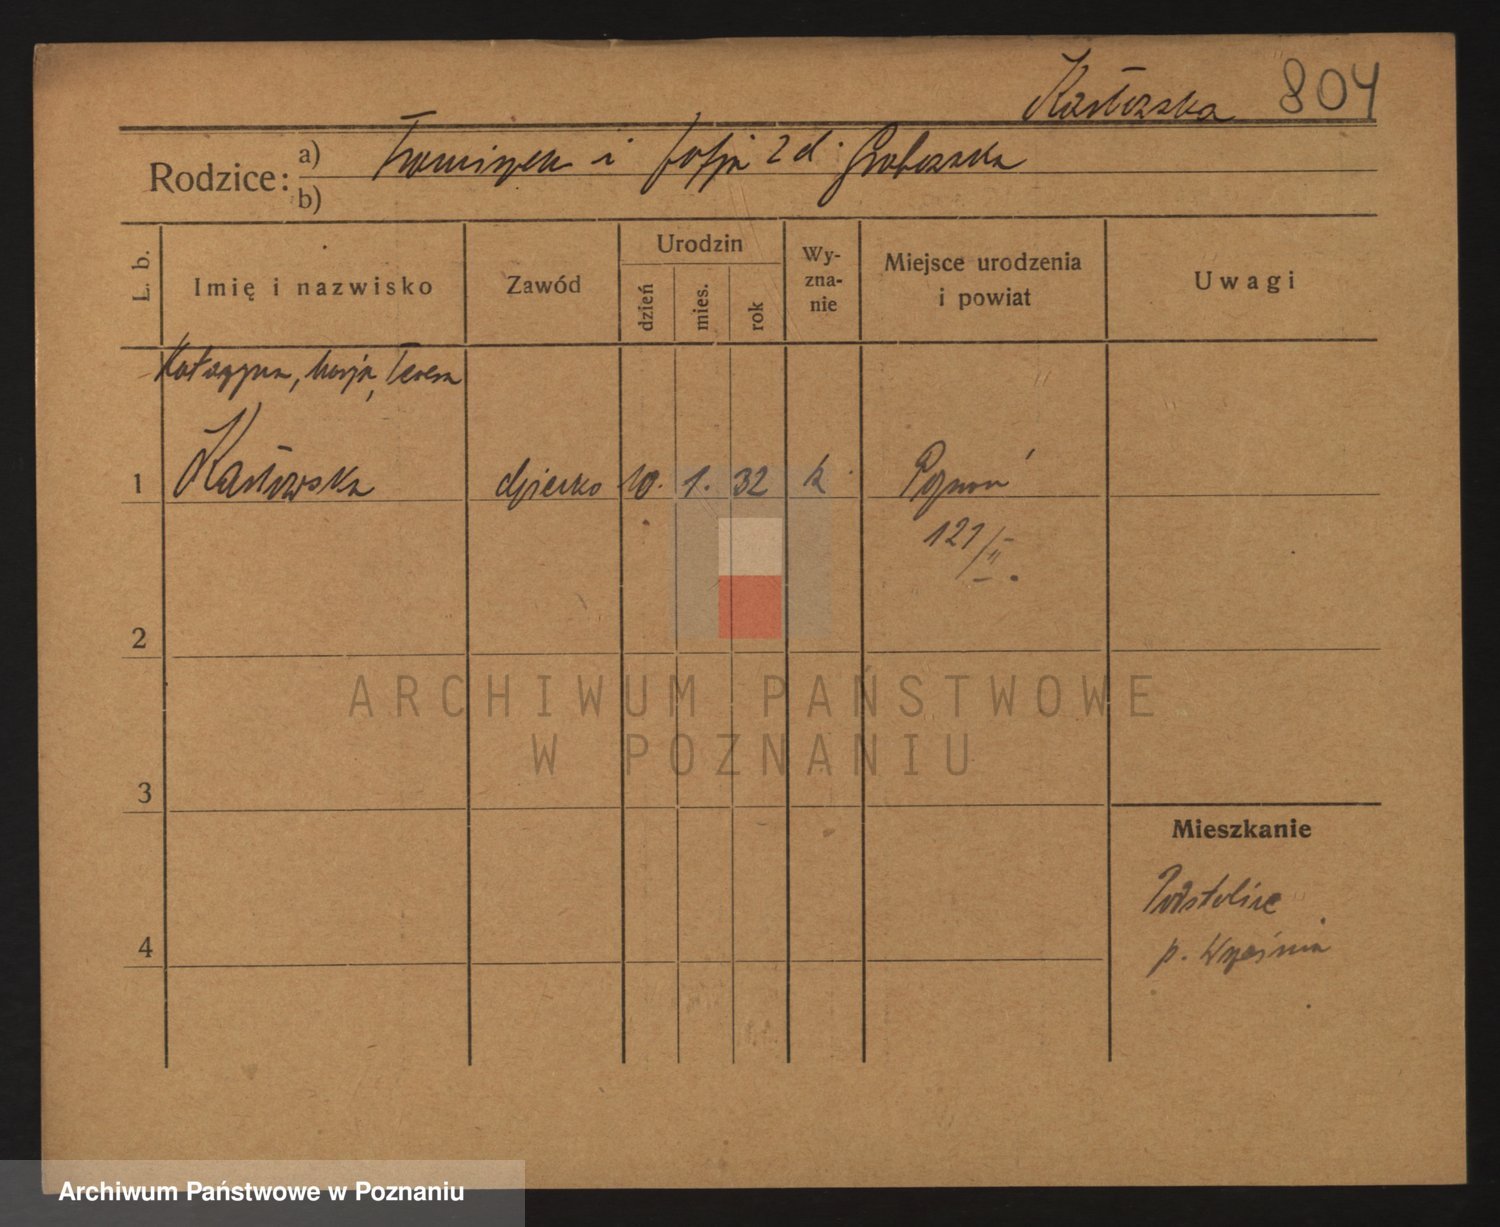 804
Rodzice:
a) Franciszek i Zofja z d. Grabczaka
b)
L. b.
Imię i nazwisko
Zawód
Urodzin
dzień
mies.
rok
Wy-
zna-
nie
Miejsce urodzenia
i powiat
Uwagi
Katarzyna, Marja, Teresa
1 dziecko 10. 1. 32 k Poznań
121/II.
2
3
4
Mieszkanie
p. Września
ARCHIWUM PAŃSTWOWE
W POZNANIU
Archiwum Państwowe w Poznaniu